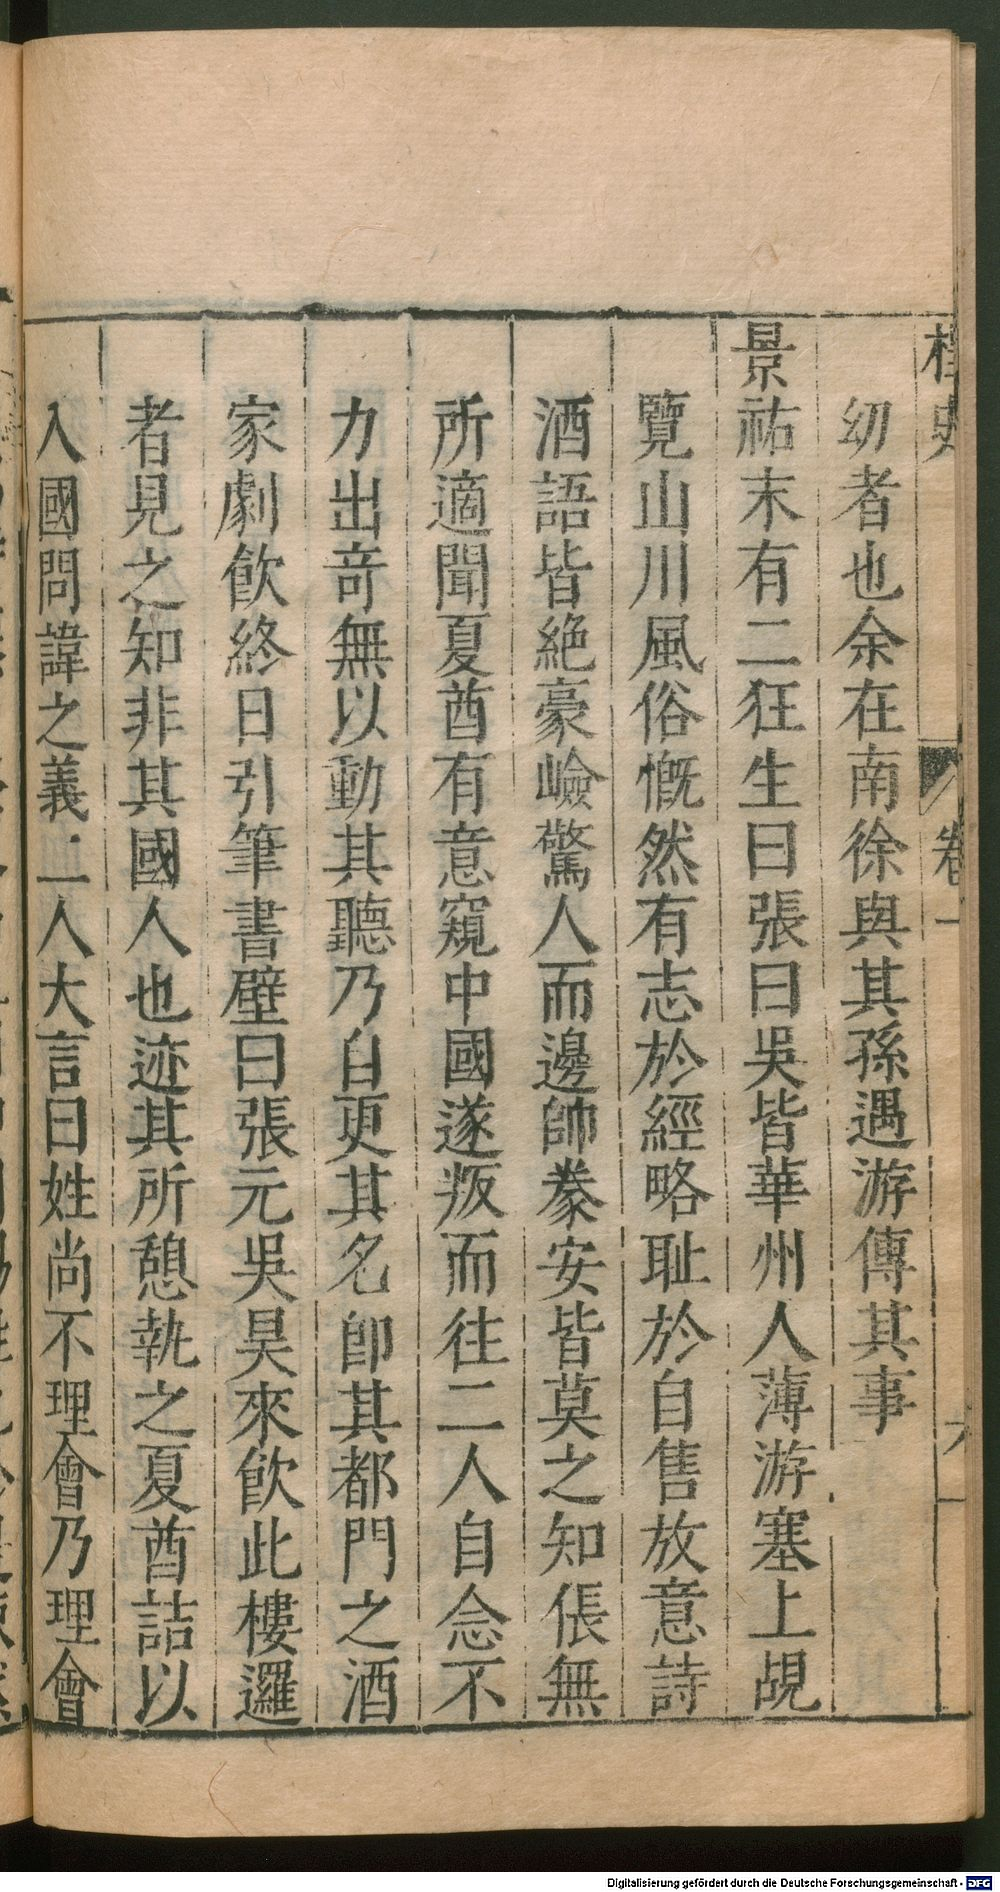 桯史
卷一
六
幼者也余在南徐與其孫遇游傳其事
景祐末有二狂生曰張曰吳皆華州人薄游塞上覘
覽山川風俗慨然有志於經略耻於自售放意詩
酒語皆絶豪嶮驚人而邊帥豢安皆莫之知倀無
所適聞夏酋有意窺中國遂叛而往二人自念不
力出竒無以動其聽乃自更其名卽其都門之酒
家劇飮終日引筆書壁曰張元吳昊來飮此樓邏
者見之知非其國人也迹其所憩執之夏酋詰以
入國問諱之義二人大言曰姓尚不理會乃理會
Digitalisierung gefördert durch die Deutsche Forschungsgemeinschaft - DFG